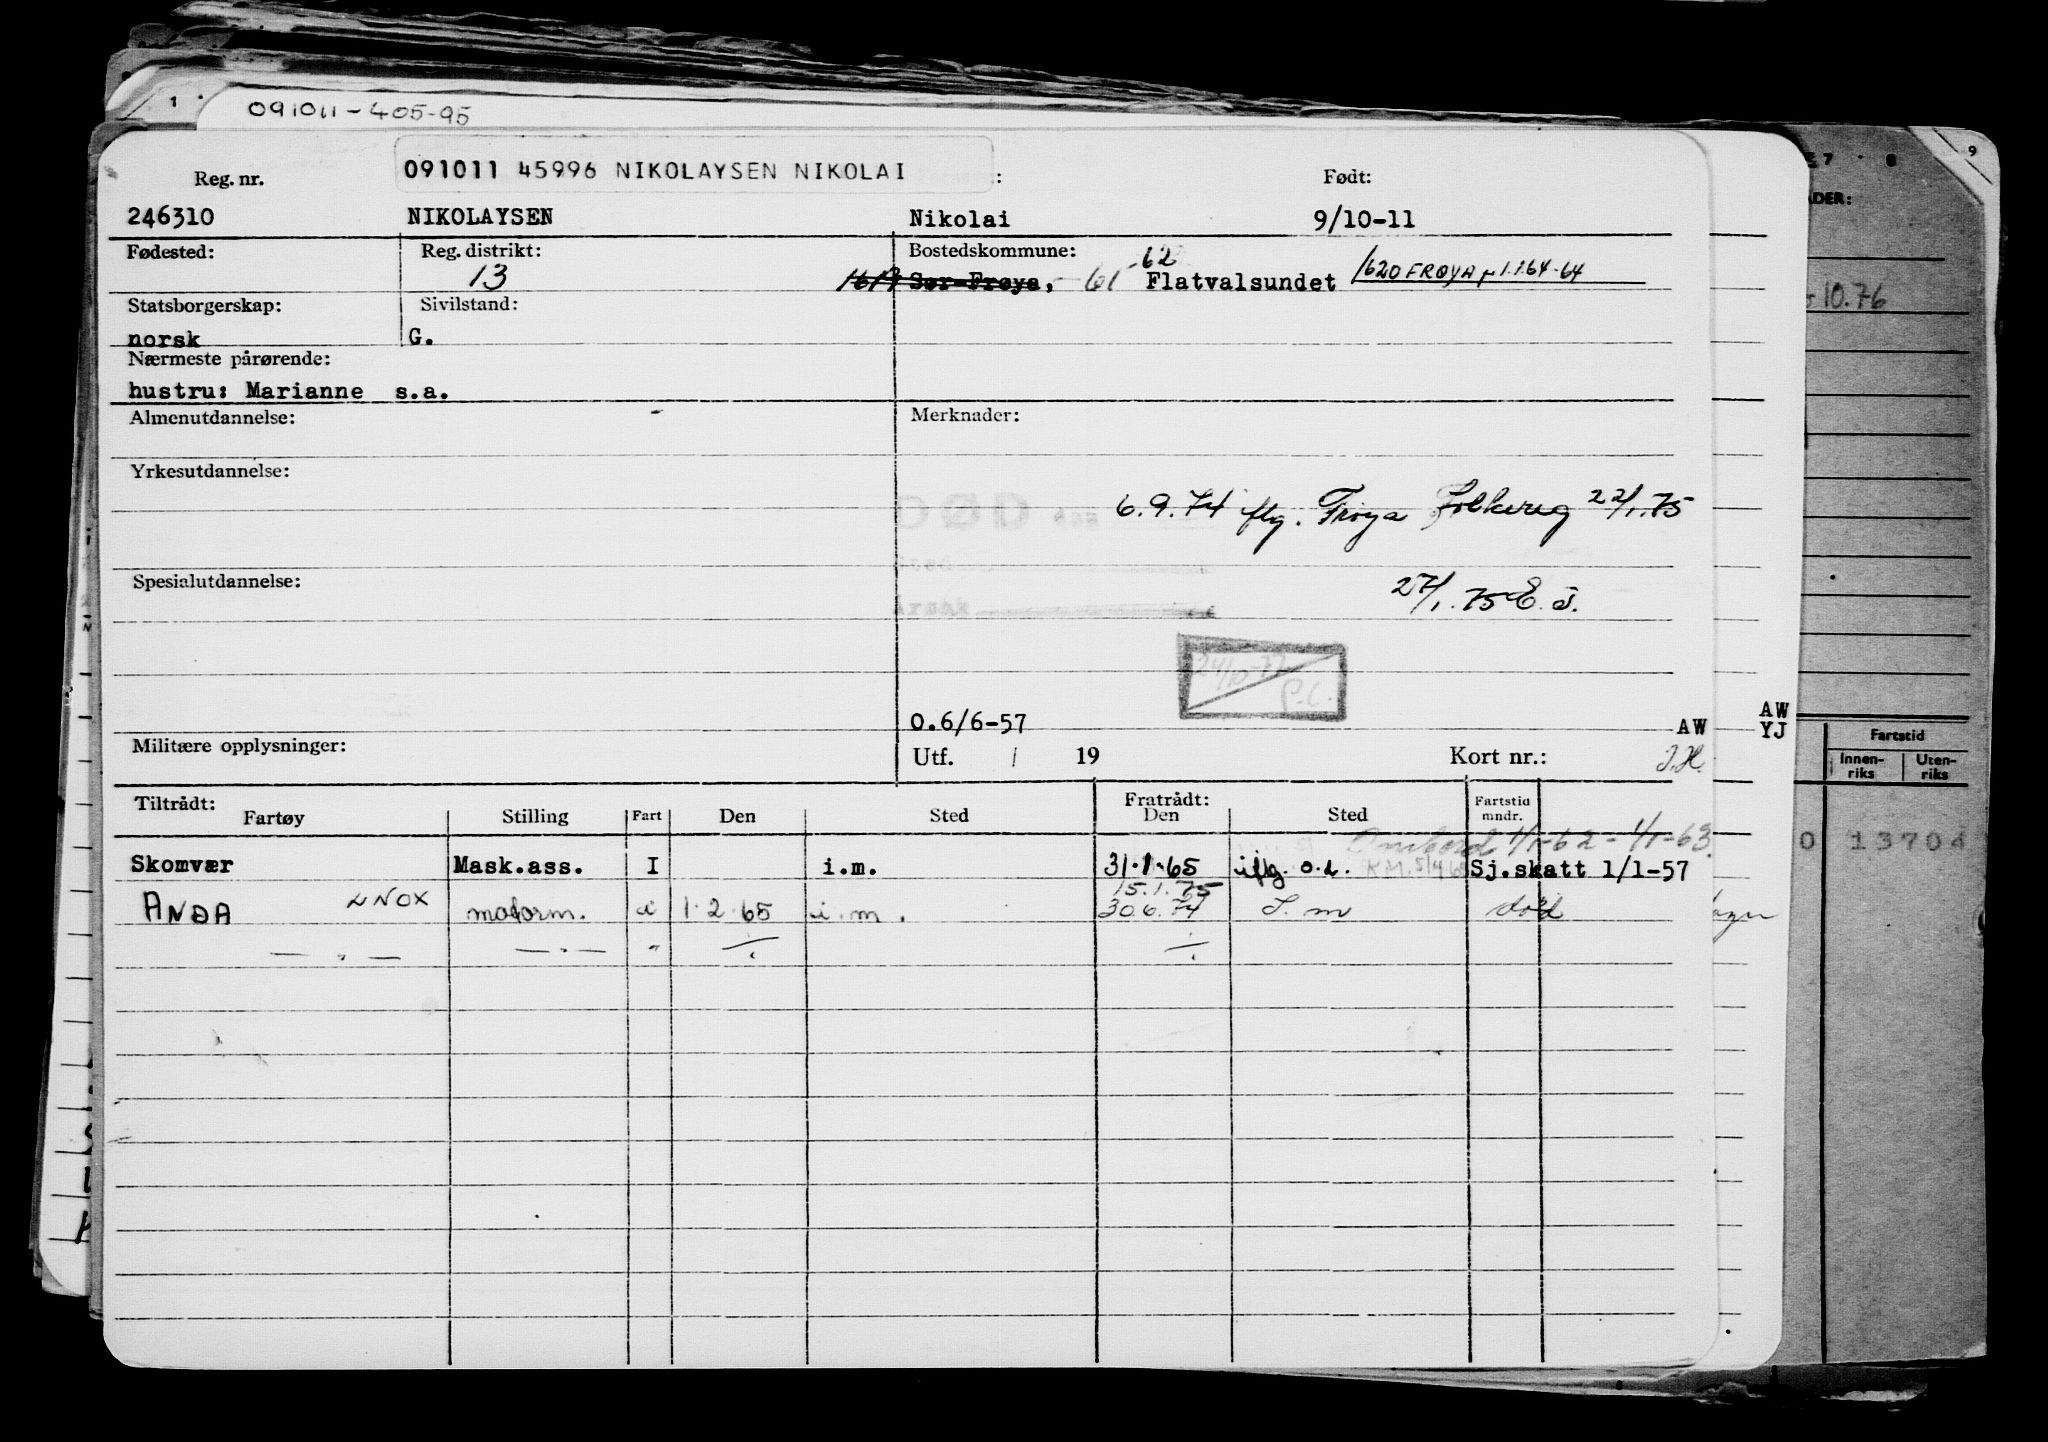 091011-405-95
1
091011 45996 NIKOLAYSEN NIKOLAI
Reg. nr. : Født:
246310 NIKOLAYSEN Nikolai 9/10-11
Fødested: Reg. distrikt: Bostedskommune:
13 1617 Sør-Frøya, 61 -62 Flatvalsundet 1620 FRØYA 1.1.64-64
Statsborgerskap: Sivilstand:
norsk G.
Nærmeste pårørende:
hustru: Marianne s.a.
Almenutdannelse: Merknader:
Yrkesutdannelse:
DØD
6.9.74 flg. Frøya Folkereg 22/1.75
Sted
Spesialutdannelse:
27/1.75 E.
Årsak
O.6/6-57 AW
Militære opplysninger: Utf. / 19 Kort nr.: J.H.
Tiltrådt: Fratrådt: Fartstid
Fartøy Stilling Fart Den Sted Den Sted mndr.
Ombord 1/1-62 - 1/1-63
Skomvær Mask.ass. I i.m. 31.1.65 iflg. o.l. Sj.skatt 1/1-57
15.1.75
ANDA LNOX i 1.2.65 i.m. 30.6.74 død
— " — — " — " ÷ ÷
AW
YJ
7 8 9
10.76
Fartstid
Innen- Uten-
riks riks
0 13704